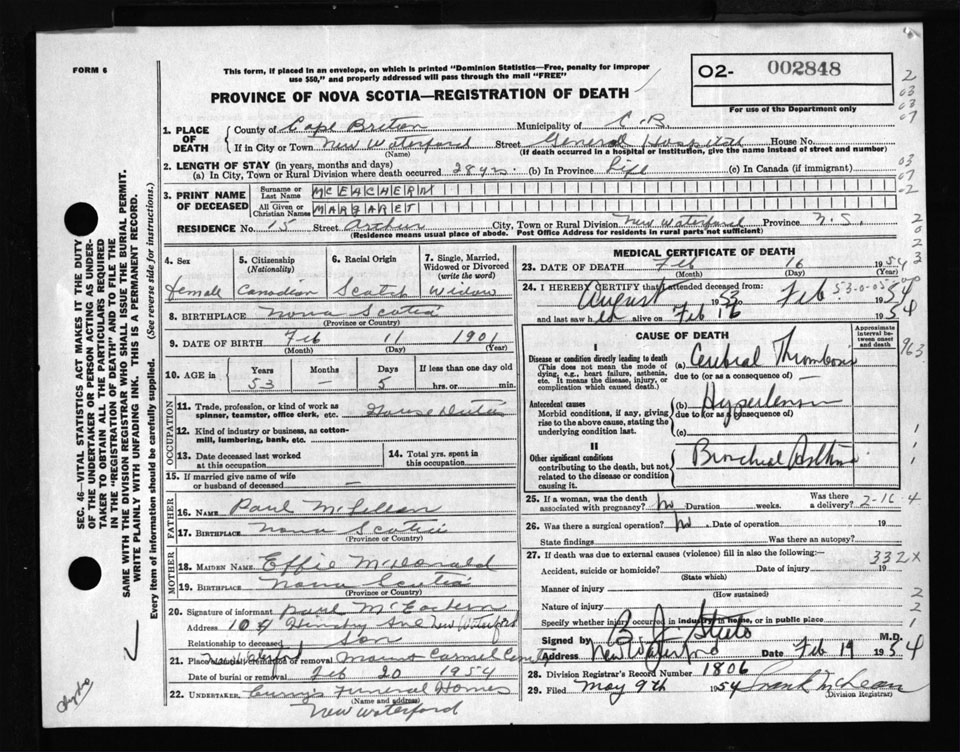 FORM 6
This form, if placed in an envelope, on which is printed "Dominion Statistics—Free, penalty for improper
use $50," and properly addressed will pass through the mail "FREE"
PROVINCE OF NOVA SCOTIA—REGISTRATION OF DEATH
02- 002848
For use of the Department only
1. PLACE OF DEATH
County of Cape Breton Municipality of C.B.
If in City or Town New Waterford Street General Hospital House No.
(Name) (If death occurred in a hospital or institution, give the name instead of street and number)
2. LENGTH OF STAY (in years, months and days)
(a) In City, Town or Rural Division where death occurred 28 yrs. (b) In Province Life (c) In Canada (if immigrant)
3. PRINT NAME OF DECEASED
Surname or Last Name MCEACHERN
All Given or Christian Names MARGARET
RESIDENCE No. 15 Street Arthur City, Town or Rural Division New Waterford Province N.S.
(Residence means usual place of abode. Post Office Address for residents in rural parts not sufficient)
4. Sex
female
5. Citizenship (Nationality)
Canadian
6. Racial Origin
Scotch
7. Single, Married, Widowed or Divorced (write the word)
Widow
8. BIRTHPLACE Nova Scotia
(Province or Country)
9. DATE OF BIRTH Feb 11 1901
(Month) (Day) (Year)
10. AGE in
Years Months Days If less than one day old
53 — 5 hrs. or min.
OCCUPATION
11. Trade, profession, or kind of work as
spinner, teamster, office clerk, etc. House Duties
12. Kind of industry or business, as cotton-
mill, lumbering, bank, etc.
13. Date deceased last worked
at this occupation
14. Total yrs. spent in
this occupation
15. If married give name of wife
or husband of deceased —
FATHER
16. NAME Paul McLellan
17. BIRTHPLACE Nova Scotia
(Province or Country)
MOTHER
18. MAIDEN NAME Effie McDonald
19. BIRTHPLACE Nova Scotia
(Province or Country)
20. Signature of informant Paul McEachern
Address 104 Ave New Waterford
Relationship to deceased Son
21. Place of burial, cremation or removal Mount Carmel Cemetery
Date of burial or removal Feb 20 1954
22. UNDERTAKER Curry's Funeral Homes
(Name and address)
New Waterford
MEDICAL CERTIFICATE OF DEATH
23. DATE OF DEATH Feb 16 1954
(Month) (Day) (Year)
24. I HEREBY CERTIFY that I attended deceased from:
August 1953 to Feb 1954
and last saw her alive on Feb 16 1954
53-0-05
CAUSE OF DEATH
Approximate interval between onset and death
I
Disease or condition directly leading to death
(This does not mean the mode of
dying, e.g., heart failure, asthenia,
etc. It means the disease, injury, or
complication which caused death.)
(a) Cerebral Thrombosis
due to (or as a consequence of)
Antecedent causes
Morbid conditions, if any, giving
rise to the above cause, stating the
underlying condition last.
(b) Hypertension
due to (or as a consequence of)
(c)
II
Other significant conditions
contributing to the death, but not
related to the disease or condition
causing it.
Bronchial Asthma
25. If a woman, was the death
associated with pregnancy? No Duration weeks. Was there a delivery?
2-16-4
26. Was there a surgical operation? No. Date of operation 19
State findings Was there an autopsy?
27. If death was due to external causes (violence) fill in also the following:—
332X
Accident, suicide or homicide? Date of injury 19
(State which)
Manner of injury
(How sustained)
Nature of injury
Specify whether injury occurred in industry, in home, or in public place
Signed by M.D.
Address New Waterford Date Feb 19 1954
28. Division Registrar's Record Number 1806
29. Filed May 9th 1954 Frank McLean
(Division Registrar)
SEC. 46—VITAL STATISTICS ACT MAKES IT THE DUTY
OF THE UNDERTAKER OR PERSON ACTING AS UNDER-
TAKER TO OBTAIN ALL THE PARTICULARS REQUIRED
IN THE "REGISTRATION OF DEATH" AND TO FILE THE
SAME WITH THE DIVISION REGISTRAR WHO SHALL ISSUE THE BURIAL PERMIT.
WRITE PLAINLY WITH UNFADING INK. THIS IS A PERMANENT RECORD.
Every item of information should be carefully supplied. (See reverse side for instructions.)